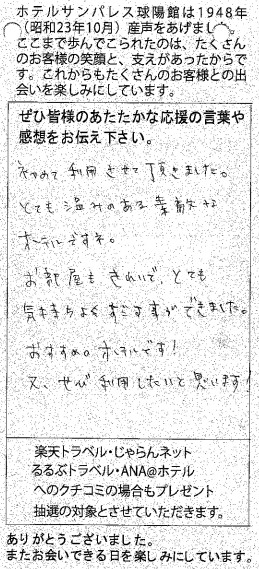 ホテルサンパレス球陽館は1948年
(昭和23年10月)産声をあげまし
ここまで歩んでこられたのは、たくさん
のお客様の笑顔と、支えがあったからで
す。これからもたくさんのお客様との出
会いを楽しみにしています。
ぜひ皆様のあたたかな応援の言葉や
感想をお伝え下さい。
初めて利用させて頂きました。
とても温みのある素敵な
ホテルですネ。
お部屋もきれいで、とても
気持ちよくすごす事ができました。
おすすめのホテルです!
又、ぜひ利用したいと思います!
楽天トラベル・じゃらんネット
るるぶトラベル・ANA@ホテル
へのクチコミの場合もプレゼント
抽選の対象とさせていただきます。
ありがとうございました。
またお会いできる日を楽しみにしています。